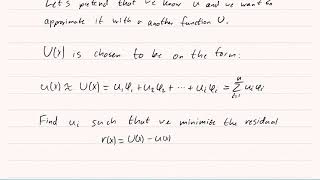 Let's pretend that we know u and we want to
approximate it with a another function U.
U(x) is chosen to be on the form:
u(x) ≈ U(x) = u₁φ₁ + u₂φ₂ + ... + uᵢφᵢ = Σᵢ₌₁ⁿ uᵢφᵢ
Find uᵢ such that we minimize the residual
r(x) = U(x) - u(x)